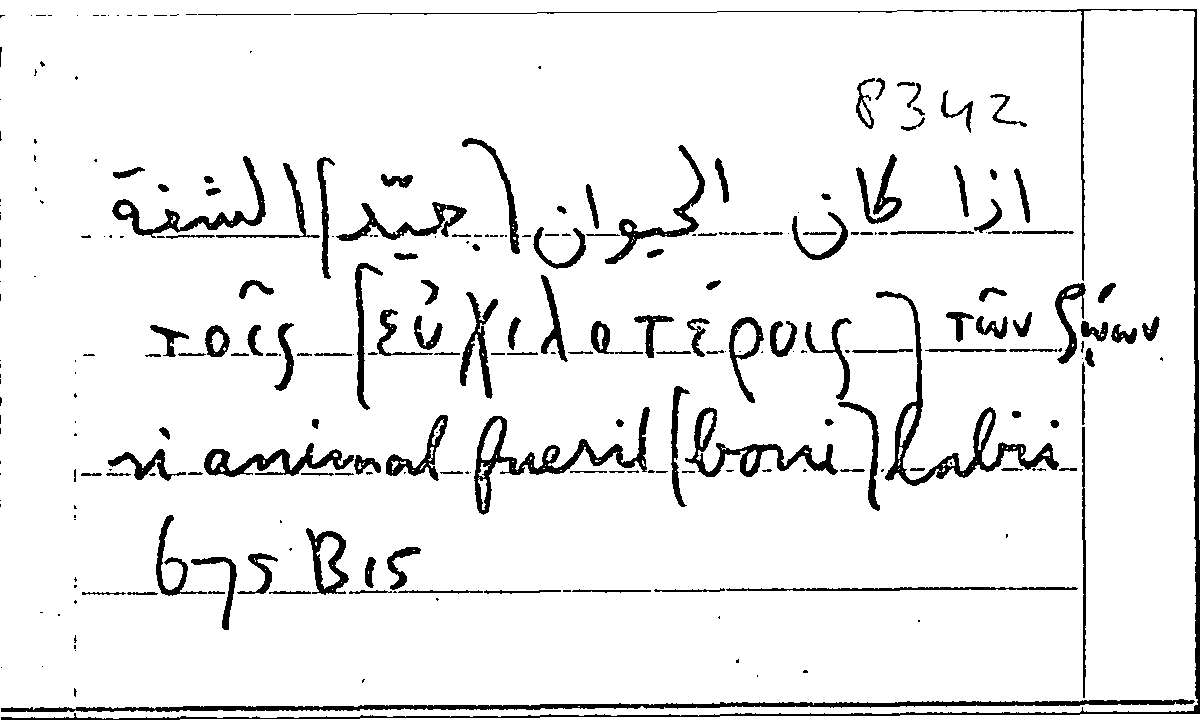 8342
اذا كان الحيوان [جيّد] الشفة
τοῖς [εὐχιλοτέροις] τῶν ζῴων
si animal fuerit [boni] labri
675 B 15